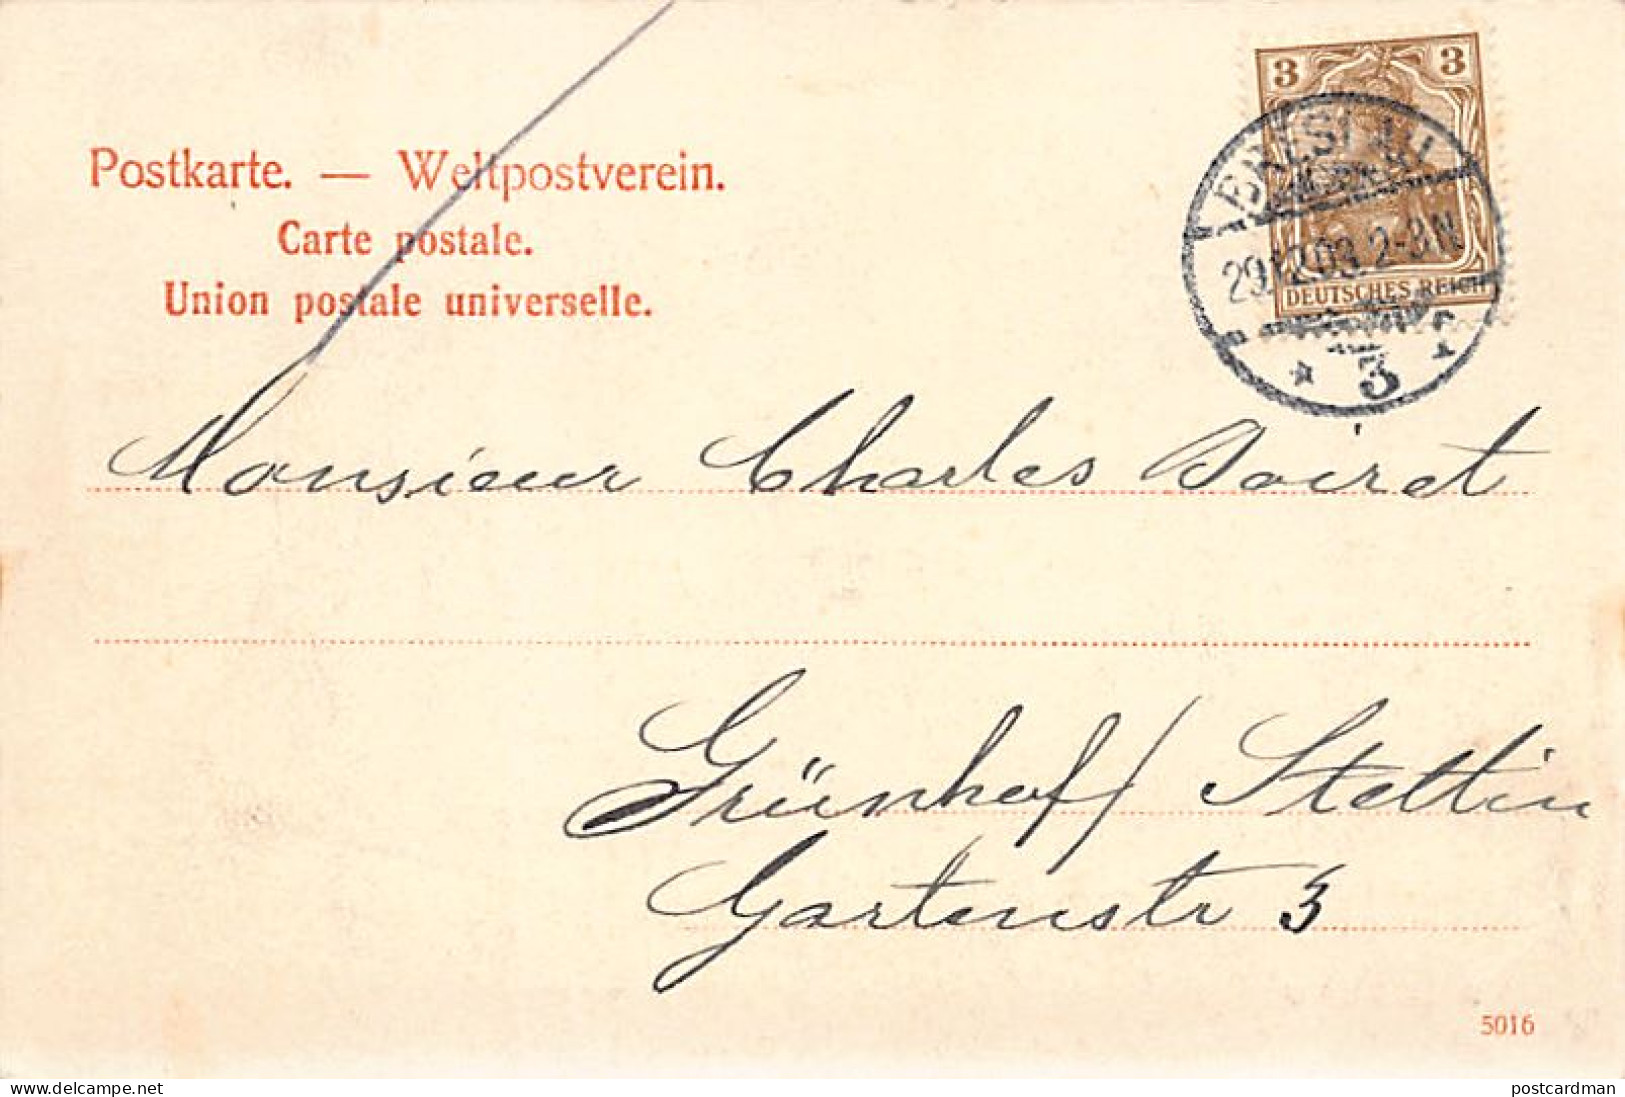 Postkarte. — Weltpostverein.
Carte postale.
Union postale universelle.
3 3
DEUTSCHES REICH
BRESLAU
29.12.03. 2-3N
* 3 *
Monsieur Charles Doiret
Grünhof / Stettin
Gartenstr 3
5016
delcampe.net
postcardman